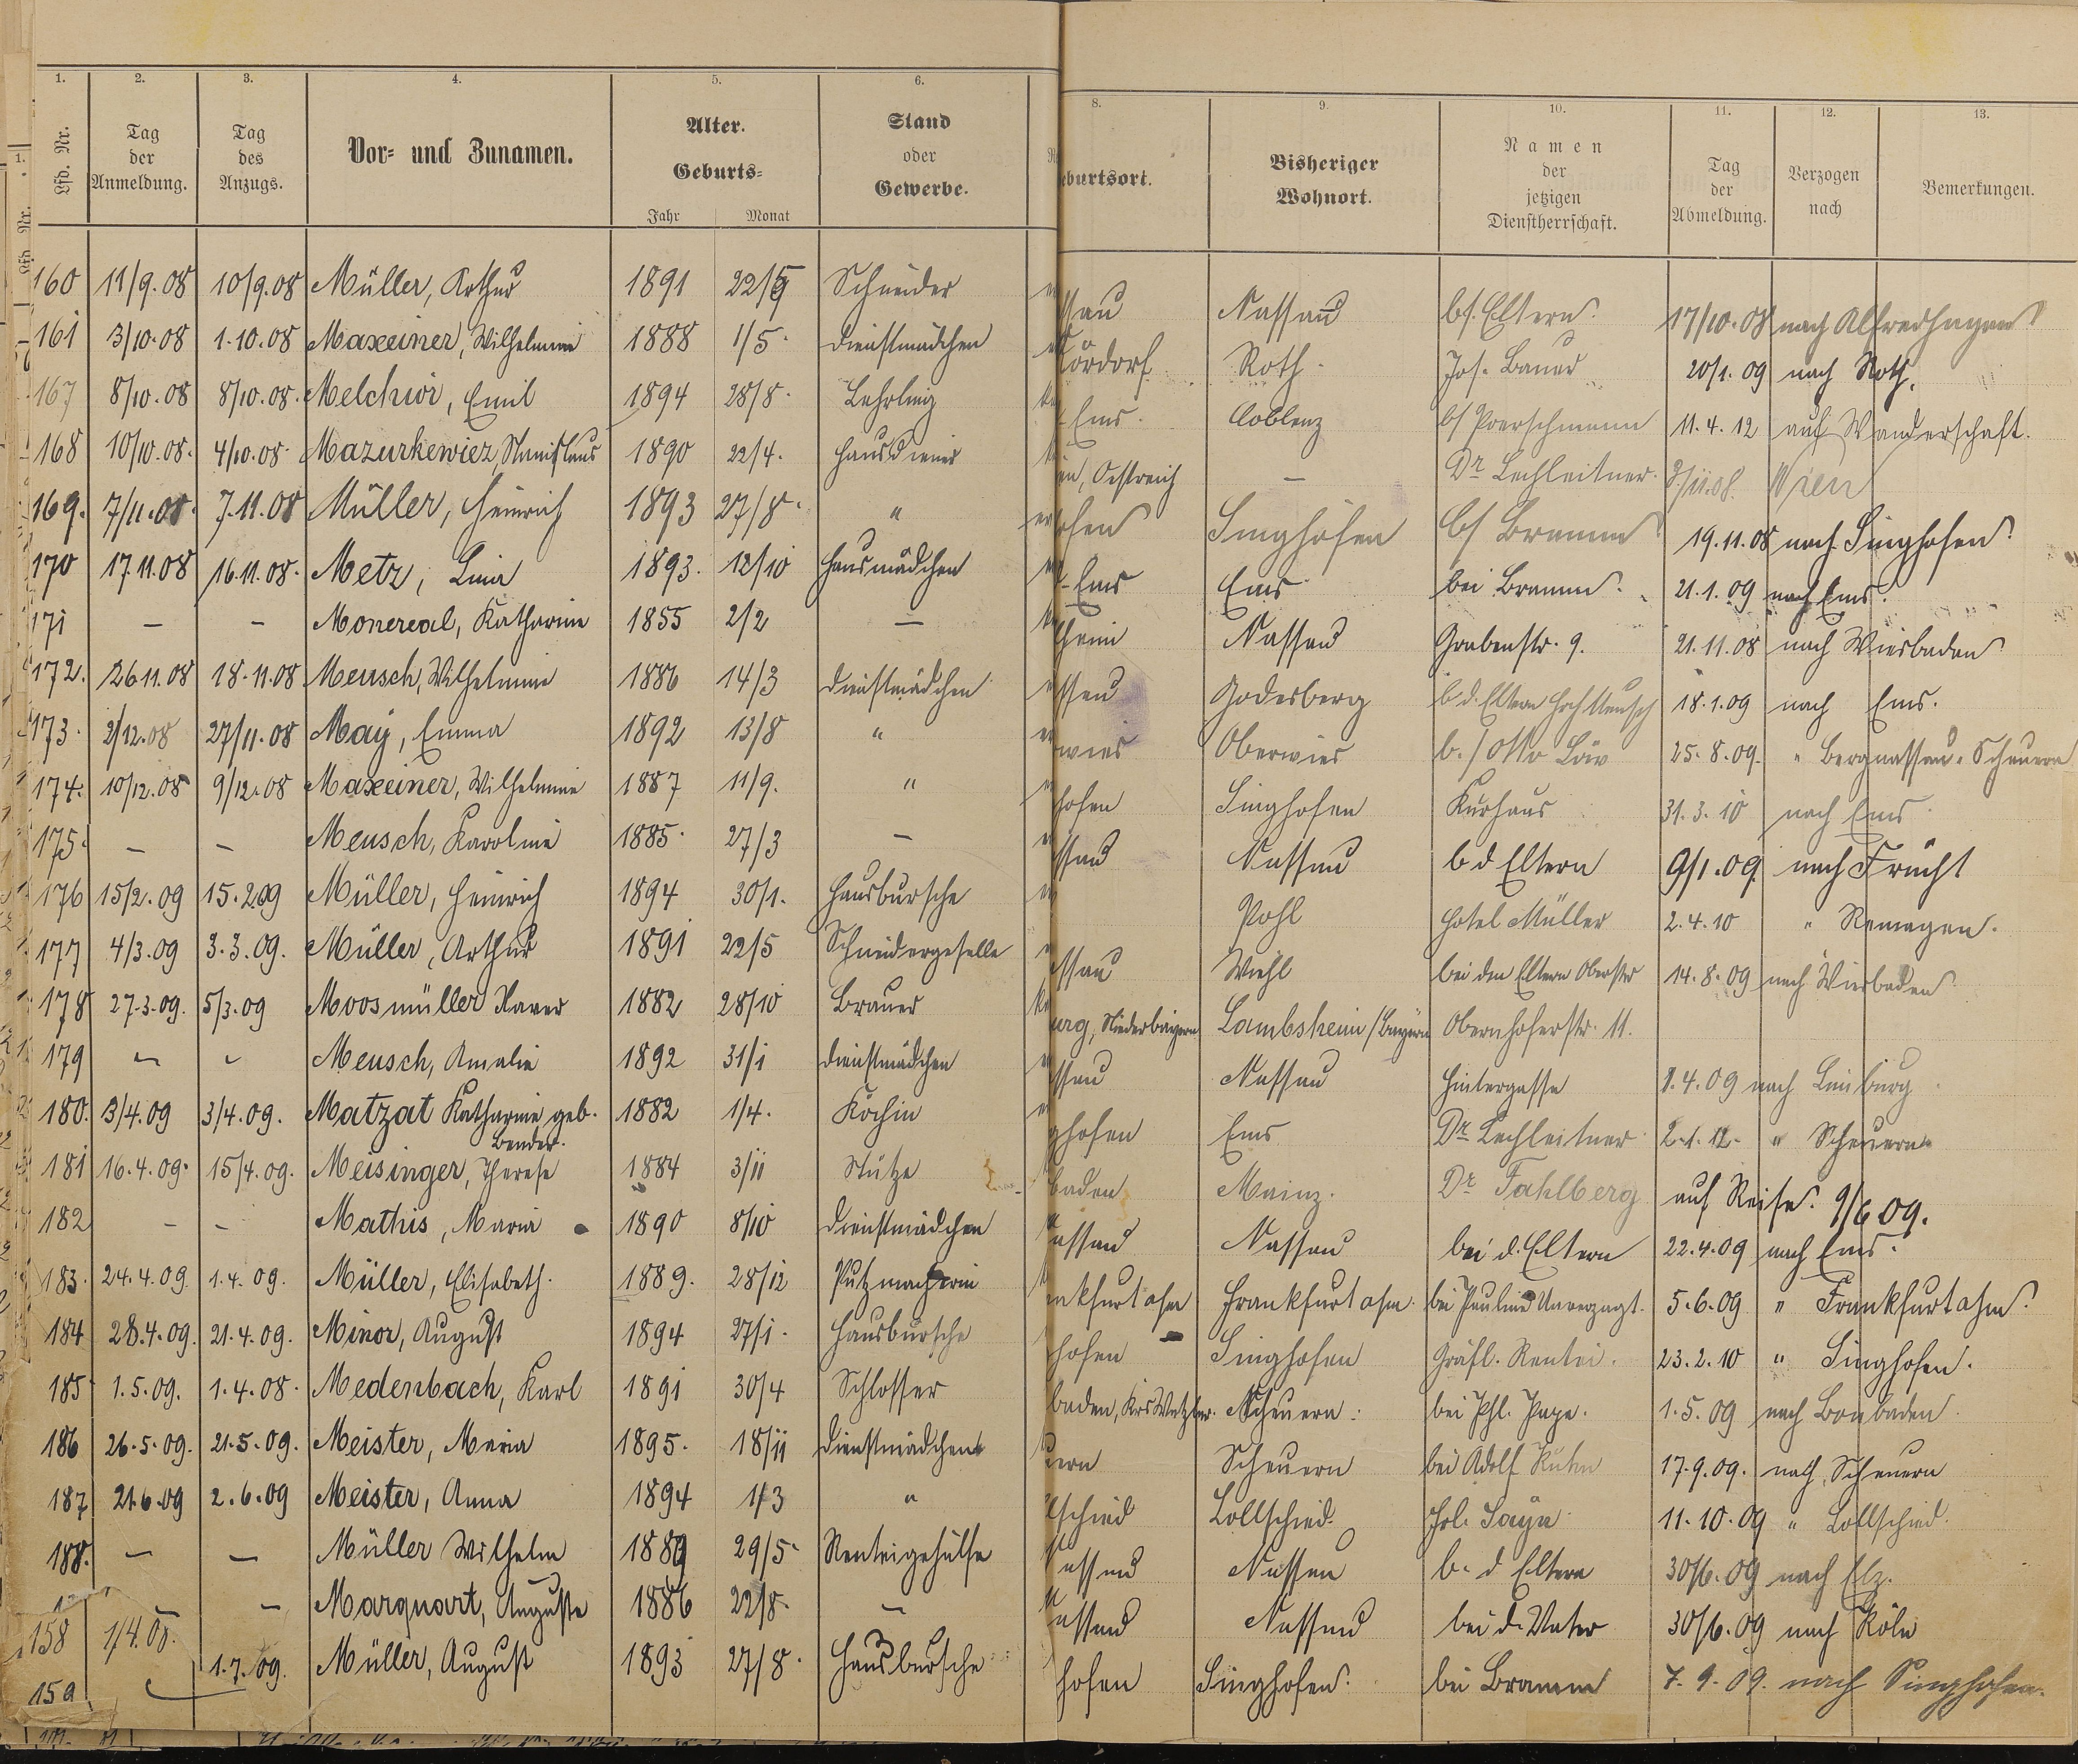 1. 2. 3. 4. 5. 6. 8. 9. 10. 11. 12. 13.
Lfd. Nr. Tag der Anmeldung. Tag des Anzugs. Vor= und Zunamen. Alter. Geburts= Jahr Monat Stand oder Gewerbe. burtsort. Bisheriger Wohnort. Namen der jetzigen Dienstherrschaft. Tag der Abmeldung. Verzogen nach Bemerkungen.
160 11/9.08 10/9.08 Müller, Arthur 1891 22/5 Schneider ssau Nassau bs. Eltern. 17/10.08 nach
161 3/10.08 1.10.08 Maxeiner, Wilhelmine 1888 1/5. Dienstmädchen ördorf Roth. Jos. Bauer 20/1.09 nach Roth.
167 8/10.08 8/10.08. Melchior, Emil 1894 28/8. Lehrling Ems. Coblenz b/ Poerschmann 11.4.12 auf Wanderschaft.
168 10/10.08. 4/10.08. Mazurkewicz Stanislaus 1890 22/4. Hausdiener en, Östreich — Dr Lechleitner. Wien
169. 7/11.08. 7.11.08 Müller, Heinrich 1893 27/8. " ofen Singhofen b/ Bramm 19.11.08 nach Singhofen.
170 17.11.08 16.11.08. Metz, Lina 1893. 12/10 Hausmädchen Ems Ems. bei Bramm. 21.1.09 nach Ems.
171 — — Monereal, Katharine 1855 2/2 — heim Nassau Grabenstr. 9. 21.11.08 nach Wiesbaden
172. 26.11.08 18.11.08 Meusch, Wilhelmine 1886 14/3 Dienstmädchen ssau Godesberg b d. Eltern Meusch 18.1.09 nach Ems.
173. 2/12.08 27/11.08 May, Emma 1892 13/8 " wies Oberwies b./ Otto Löw 25.8.09. " Bergnassau-Scheuern
174. 10/12.08 9/12.08 Maxeiner, Wilhelmine 1887 11/9. " hofen Singhofen Kurhaus 31.3.10 nach Ems.
175. — — Meusch, Karoline 1885. 27/3 — ssau Nassau b d Eltern 9/1.09. nach Frücht
176 15/2.09 15.2.09 Müller, Heinrich 1894 30/1. Hausbursche Pohl Hotel Müller 2.4.10 " Remagen.
177 4/3.09 3.3.09. Müller, Arthur 1891 22/5 Schneidergeselle ssau Wiehl bei den Eltern 14.8.09 nach Wiesbaden
178 27.3.09. 5/3.09 Moosmüller Xaver 1882 28/10 Brauer urg, Niederbayern Lambsheim / Bayern Obernhoferstr. 11.
179 — — Meusch, Amalie 1892 31/1 Dienstmädchen ssau Nassau Hintergasse 1.4.09 nach Limburg.
180. 3/4.09 3/4.09. Matzat Katharine geb. Bender. 1882 1/4. Köchin ghofen Ems Dr Lechleitner 2.1.12. " Scheuern.
181 16.4.09. 15/4.09. Meisinger, Therese 1884 3/11 Stütze baden Mainz. Dr Fahlberg auf Reise. 9/6 09.
182 — — Mathis, Maria 1890 8/10 Dienstmädchen assau Nassau bei d. Eltern 22.4.09 nach Ems.
183. 24.4.09. 1.4.09. Müller, Elisabeth. 1889. 28/12 Putzmacherin nkfurt a/m Frankfurt a/m. bei Pauline Unverzagt. 5.6.09. " Frankfurt a/m.
184 28.4.09. 21.4.09. Minor, August 1894 27/1. Hausbursche hofen Singhofen Gräfl. Rentei. 23.2.10 " Singhofen.
185 1.5.09. 1.4.08. Medenbach, Karl 1891 30/4 Schlosser baden, Krs Wetzlar. Scheuern. bei Phl. Pape. 1.5.09 nach Bonbaden.
186 26.5.09. 21.5.09. Meister, Maria 1895. 18/11 Dienstmädchen uern Scheuern bei Adolf Kuhn 17.9.09. nach Scheuern
187 21.6.09 2.6.09 Meister, Anna 1894 1/3 " lschied Lollschied. 11.10.09 " Lollschied.
188. — — Müller Wilhelm 1889 29/5 Renteigehülfe assau Nassau b. d Eltern 30/6.09 nach Elz.
— Marquart, Auguste 1886 22/8. — assau Nassau bei d. Vater 30/6.09 nach Köln
158 1/4.08.
1.7.09. Müller, August 1893 27/8. Hausbursche hofen Singhofen. bei Bramm 7.9.09. nach Singhofen.
159